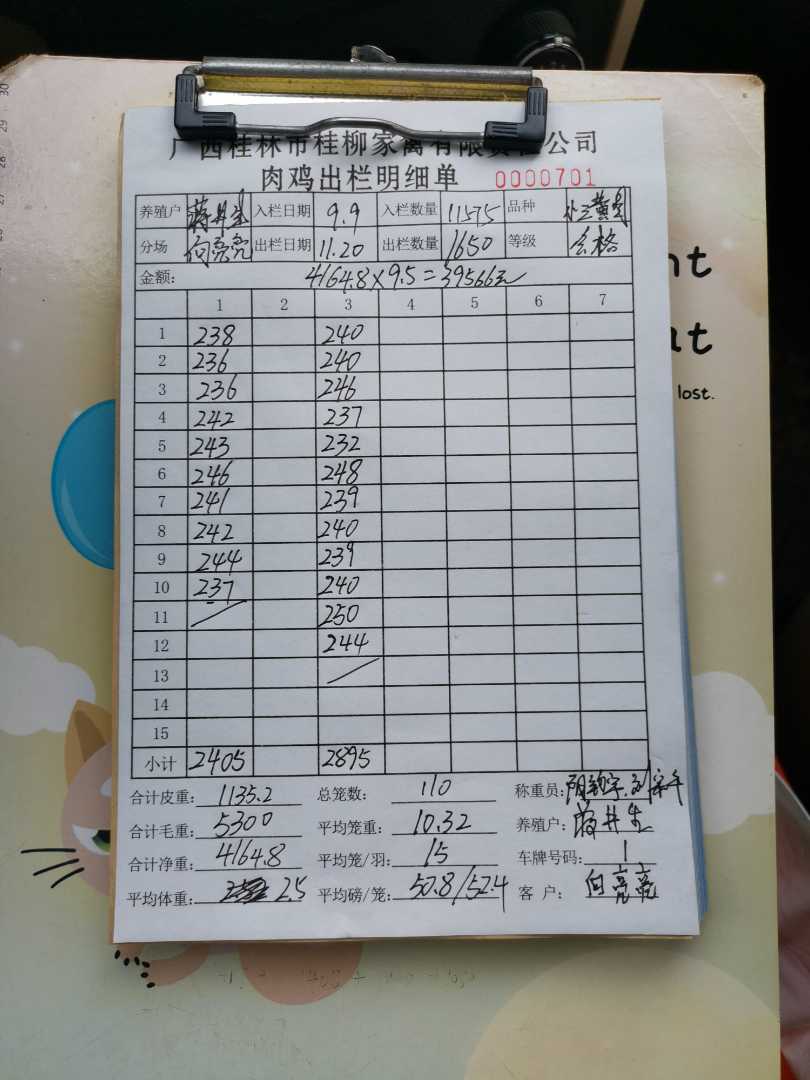 广西桂林市桂柳家禽有限责任公司
肉鸡出栏明细单 0000701
养殖户 蒋井生 入栏日期 9.9 入栏数量 11575 品种
分场 向亮亮 出栏日期 11.20 出栏数量 1650 等级 合格
金额: 4164.8×9.5=39566元
1 2 3 4 5 6 7
1 238 240
2 236 240
3 236 246
4 242 237
5 243 232
6 246 248
7 241 239
8 242 240
9 244 239
10 237 240
11 250
12 244
13
14
15
小计 2405 2895
合计皮重: 1135.2 总笼数: 110 称重员:
合计毛重: 5300 平均笼重: 10.32 养殖户: 蒋井生
合计净重: 4164.8 平均笼/羽: 15 车牌号码: 1
平均体重: 2.5 平均磅/笼: 50.8/52.4 客 户: 向亮亮
nt
at
lost.
30
29
28